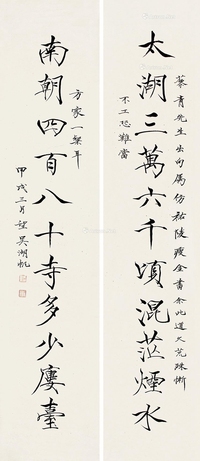 太湖三萬六千頃混茫煙水
慕青先生出句屬仿祐陵瘦金書余此道久荒殊慚
不工恐難當
南朝四百八十寺多少廔臺
方家一粲耳
甲戌三月望吳湖帆